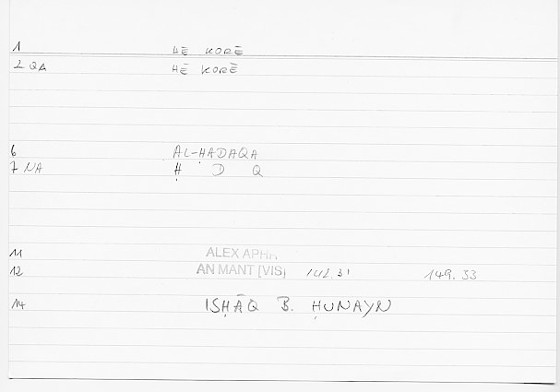 1 HĒ KORĒ
2 QA HĒ KORĒ
6 AL-ḤADAQA
7 NA Ḥ D Q
11 ALEX APHR
12 AN MANT [VIS] 149.33
14 ISḤĀQ B. ḤUNAYN